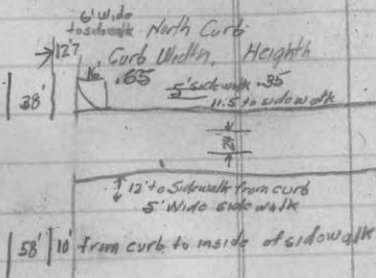 6' Wide
to sidewalk North Curb
→ 127 Curb Width, Heighth
16' .65 5' sidewalk .35
38' 11.5 to sidewalk
12' to Sidewalk from curb
5' Wide sidewalk
58' 10' from curb to inside of sidewalk